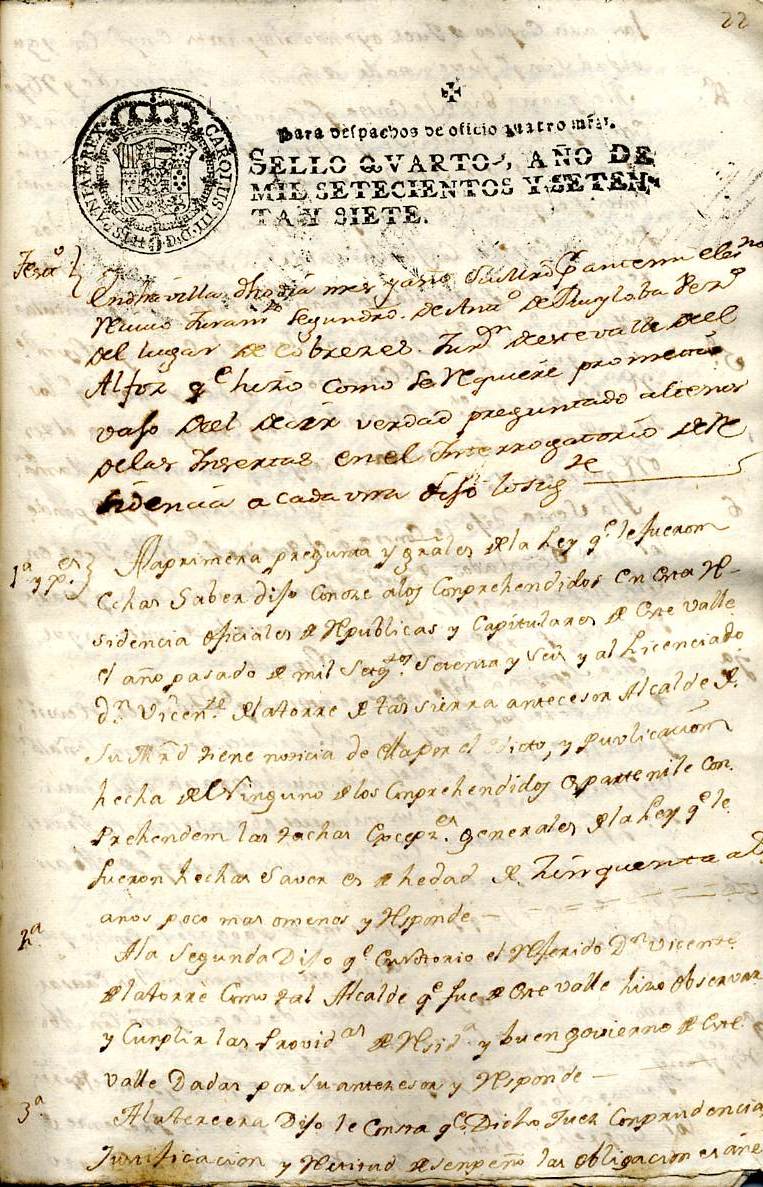 22
Para despachos de oficio quatro mrs.
SELLO QVARTO, AÑO DE
MIL SETECIENTOS Y SETEN-
TA Y SIETE.
CAROLUS III D.G. HISPANIAR. REX
En dha villa dho dia mes y año Su Mrd Por antemi el esno
del lugar de Cobrezes. Jurdn de este valle del
Alfoz qe hizo como se requiere prometio
vaxo del decir verdad preguntado altenor
delas Insertas en el Interrogatorio de Re
sidencia acada una dixo lo sigte
1a y pes
Alaprimera pregunta y grales de la Ley qe le fueron
echas Saber dijo Conoze alos Conprehendidos en esta Re-
sidencia oficiales de Republicas y Capitulares de este valle
el año pasado de mil Setztos Setenta y Seis y al Licenciado
dn Vicente de latorre de antecesor Alcalde de
Su Mrd tiene noticia de ella por el Victo, y Publicacion
hecha de Ninguno de los Conprehendidos parte nile Con
Prehendem las techas generales de la Ley qe le
fueron hechas Saver es de hedad de Zinquenta a
años poco mas omenos y Responde
2a
Ala Segunda Dijo qe el Referido Dn Vicente
de latorre Como tal Alcalde qe fue de este valle hizo observar
y Cunplir las Providas de Resida y buen govierno de este
valle Dadas por Su antecesor y Responde
3a
Alatercera Dijo le Consta qe Dicho Juez Conprudencia
Justificacion y Retitud desenpeño las obligaciones ane